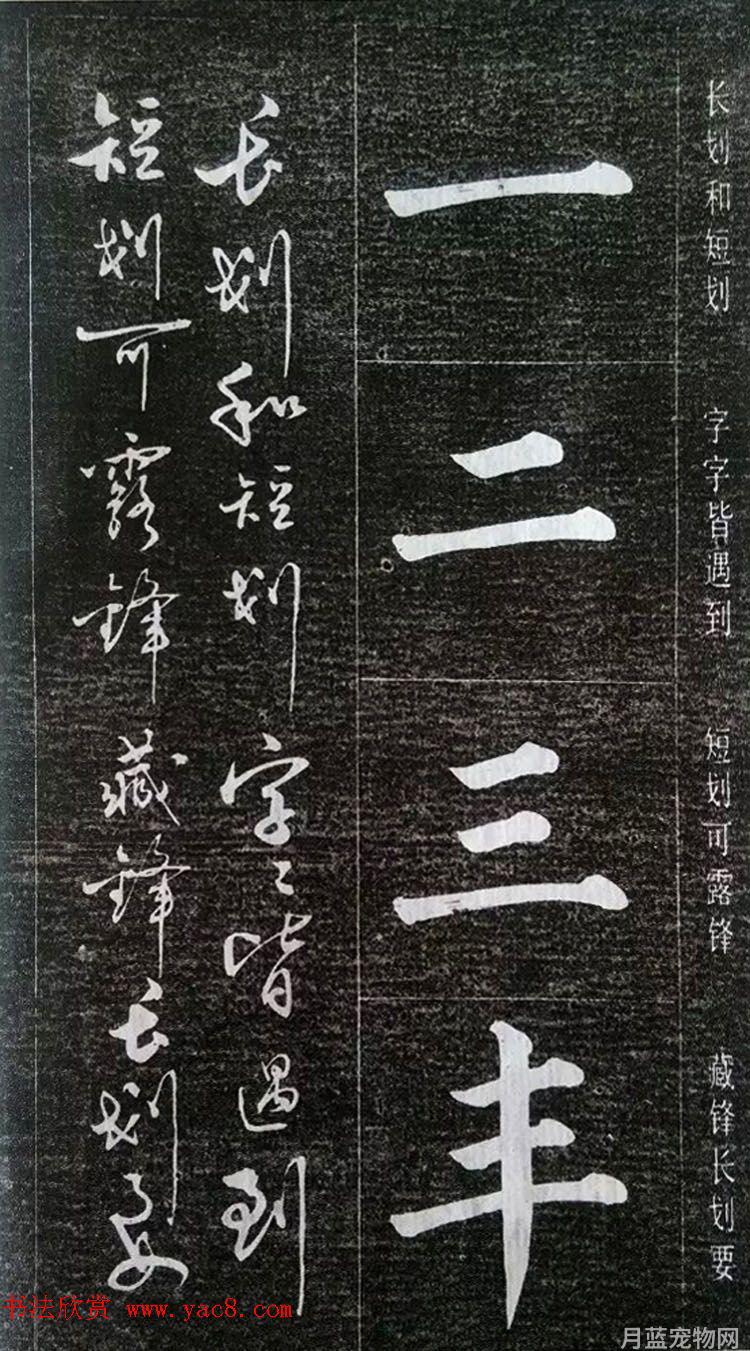 长划和短划 字字皆遇到 短划可露锋 藏锋长划要
一
二
三
丰
长划和短划字〻皆遇到
短划可露锋藏锋长划要
书法欣赏 www.yac8.com
月蓝宠物网